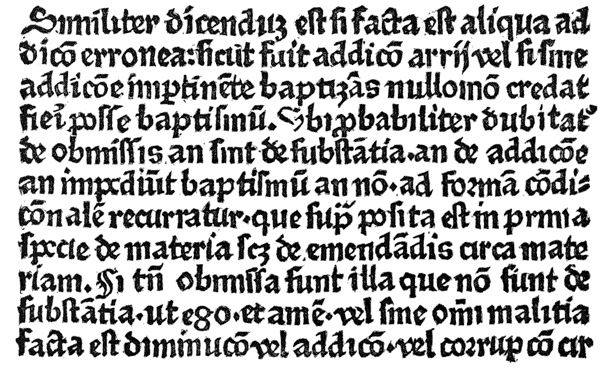 Similiter dicenduʒ est si facta est aliqua ad
dicōʒ erronea: sicut fuit addicō arrij vel si sine
addicōe imptinēte baptizās nullomō credat
fieri posse baptismū. Vbi ꝓbabiliter dubitat᷒
de obmissis an sint de substātia. an de addicōe
an impediūt baptismū an nō. ad formā cōdi⸗
cōnalē recurratur. que supͣ posita est in prima
specie de materia scʒ de emendādis circa mate
riam. Si tn̄ obmissa sunt illa que nō sunt de
substātia. ut ego. et amē. vel sine om̄i malitia
facta est diminucō vel addicō. vel corrupcō cir